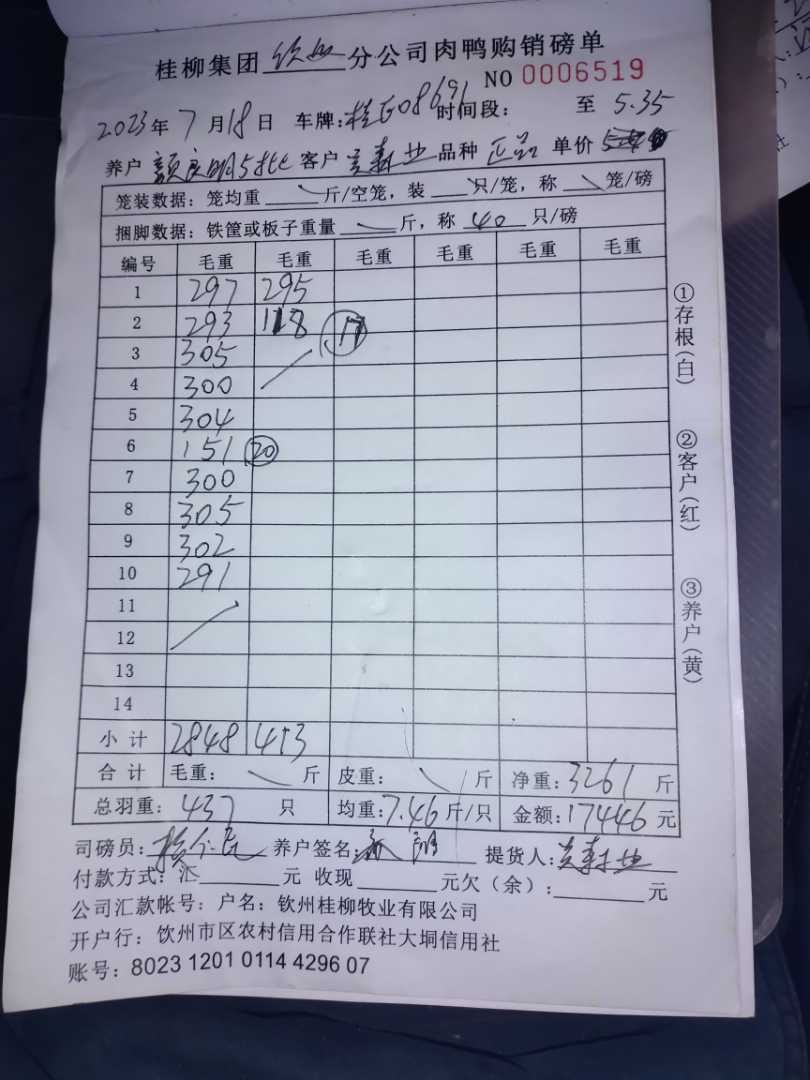 桂柳集团 钦州 分公司肉鸭购销磅单
NO 0006519
2023年 7月18日 车牌: 时间段: 至 5.35
养户 客户 品种 正品 单价
笼装数据: 笼均重 斤/空笼, 装 只/笼, 称 笼/磅
捆脚数据: 铁筐或板子重量 斤, 称 40 只/磅
编号 毛重 毛重 毛重 毛重 毛重 毛重
1 297 295
2 293 118 17
3 305
4 300
5 304
6 151 20
7 300
8 305
9 302
10 291
11
12
13
14
小 计 2848 413
合 计 毛重: 斤 皮重: 斤 净重: 3261 斤
总羽重: 437 只 均重: 7.46 斤/只 金额: 17446 元
司磅员: 养户签名: 提货人:
付款方式: 汇 元 收现 元欠(余): 元
公司汇款帐号: 户名: 钦州桂柳牧业有限公司
开户行: 饮州市区农村信用合作联社大垌信用社
账号: 8023 1201 0114 4296 07
①存根(白)
②客户(红)
③养户(黄)